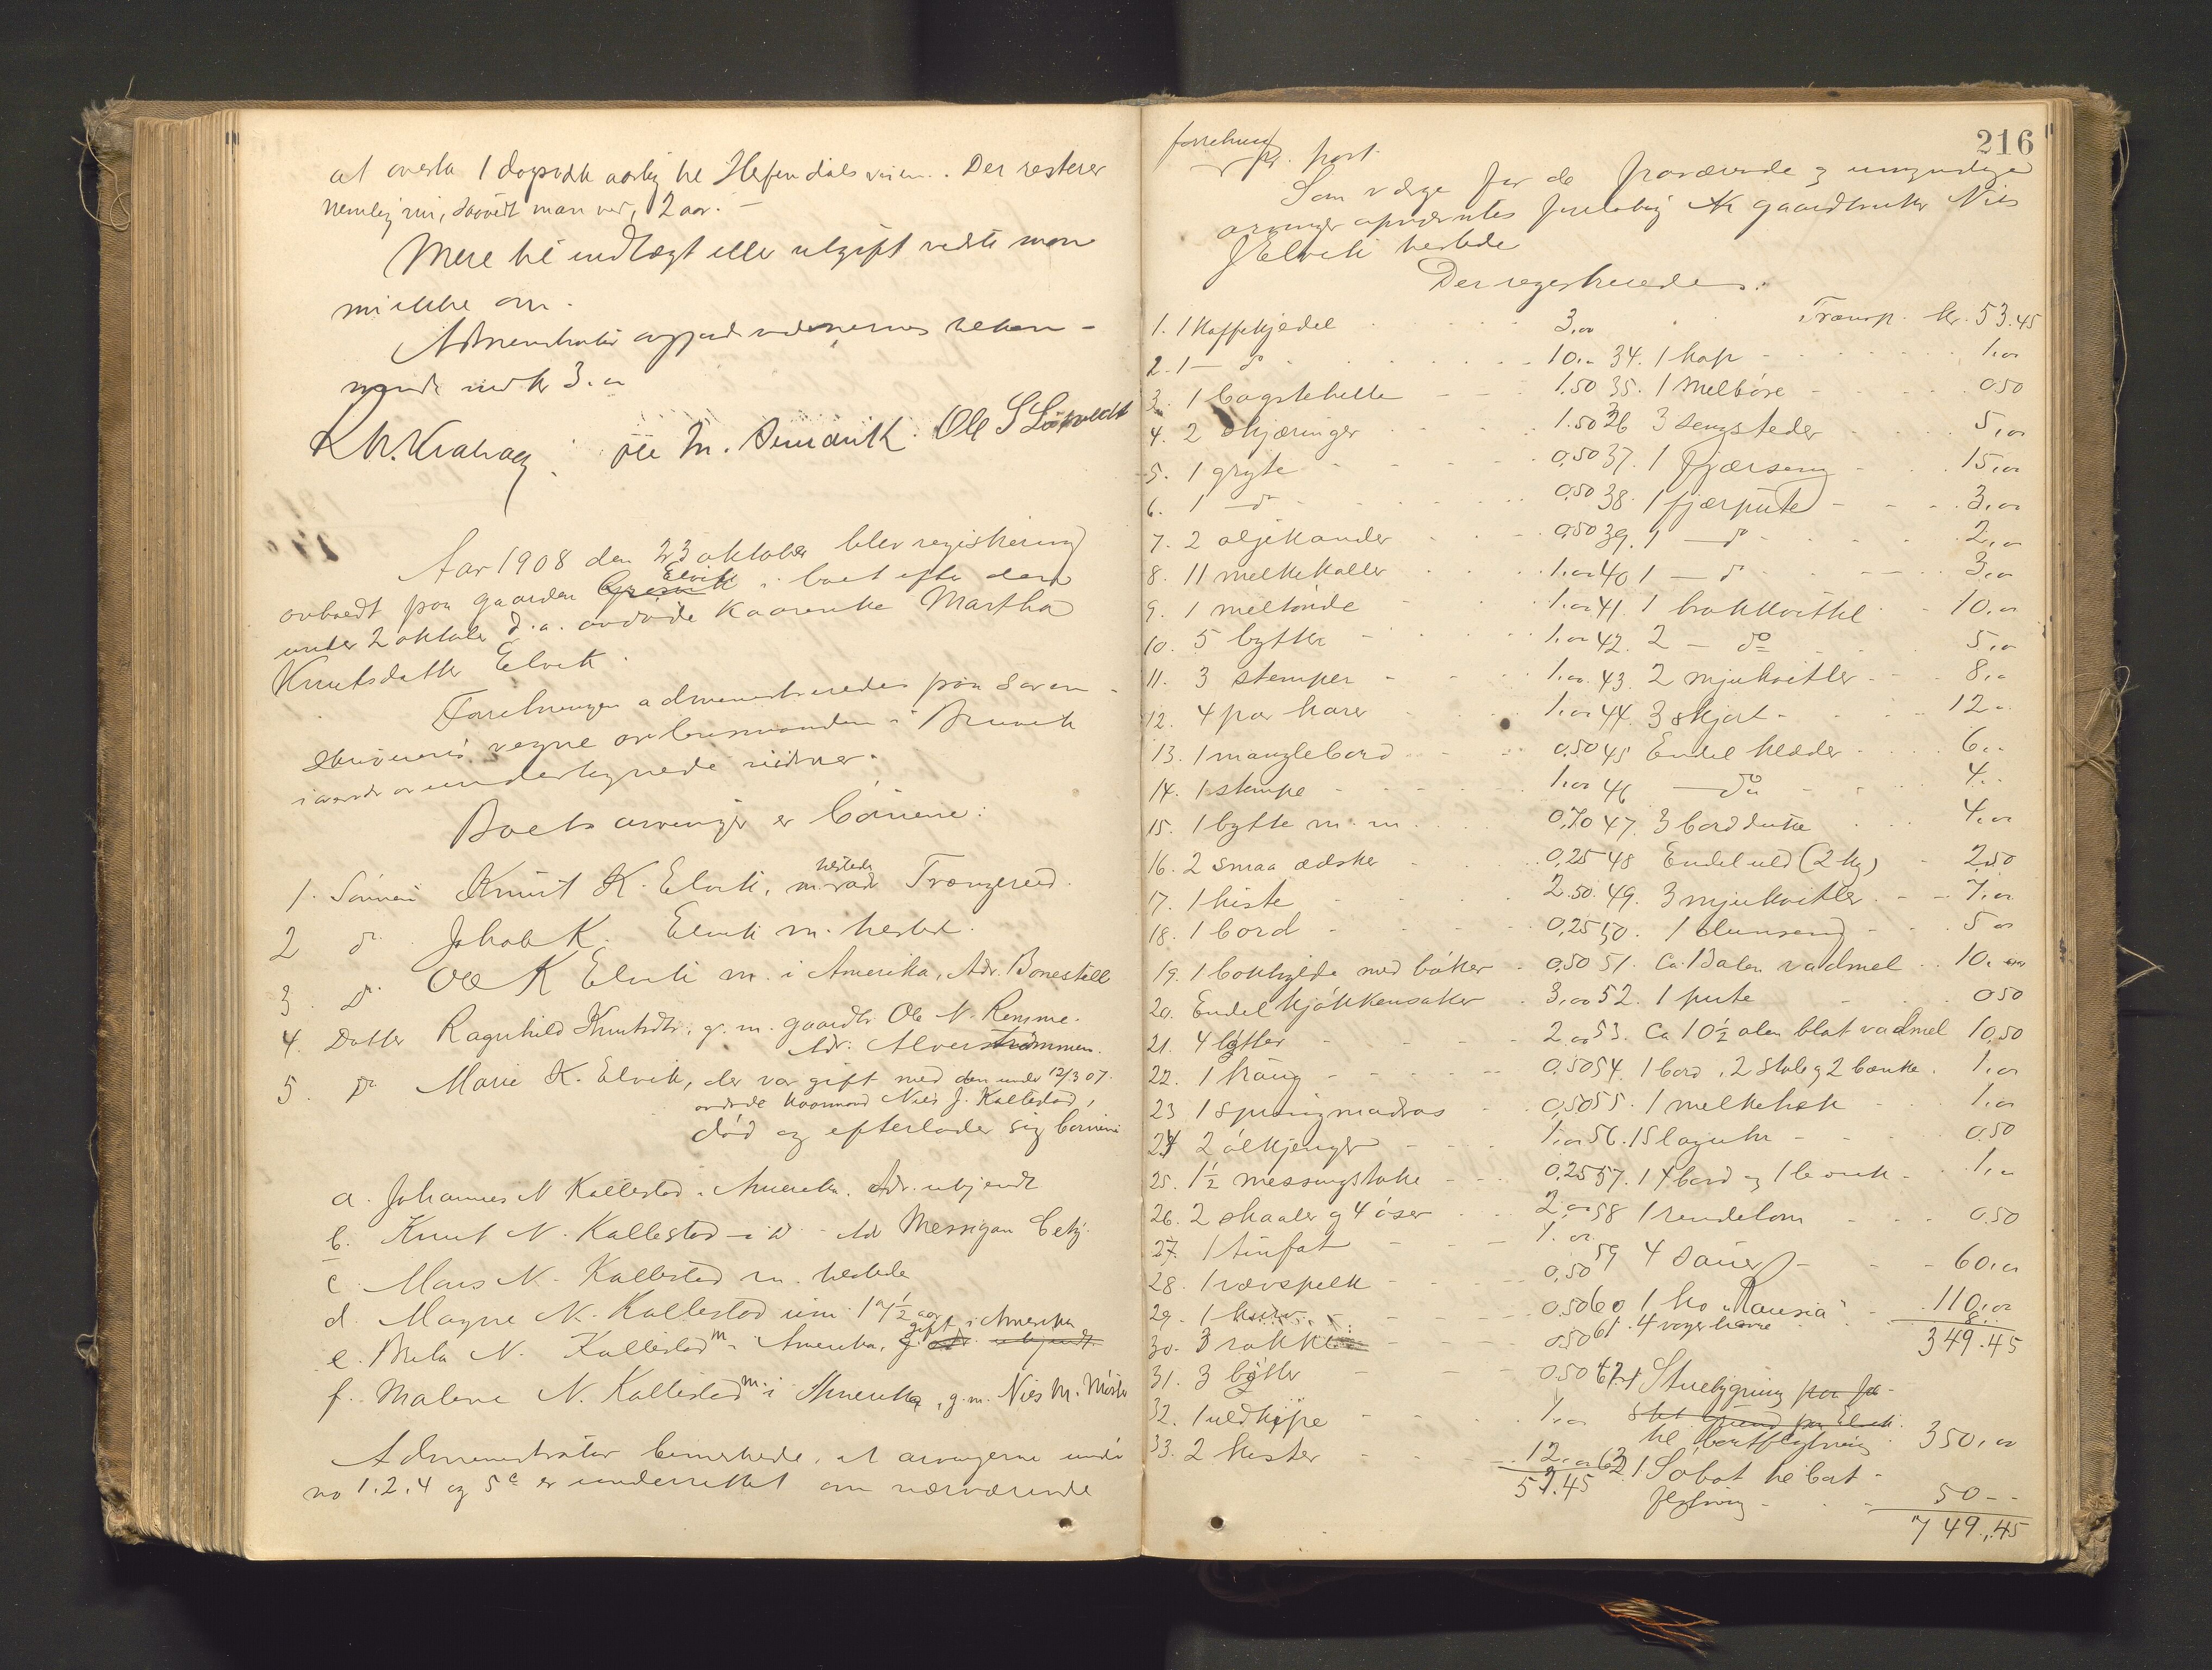 at overta 1 dagsverk aarlig til Herfindalsveien. Der resterer
nemlig nu, saavidt man ved, 2 aar. —
Mere til indtægt eller utgift vidste man
nu ikke om.
Administrator opgav vidnernes
med kr 3.00
Ole M. Ole S
Aar 1908 den 23 oktober blev registrering
avholdt paa gaarden Elvik i boet efter den
under 2 oktober d.a. avdøde kaarenke Martha
Knutsdatter Elvik.
Forretningen administreredes paa Soren-
skriverens vegne av lensmanden i Bruvik
i overvær av undertegnede vidner.
Boets arvinger er børnene:
1. Sønnen Knut K. Elvik, m. hersteds
2 do Jakob K. Elvik m. hersted.
3. do Ole K Elvik m. i Amerika, Adr. Bonestell
4. Datter Ragnhild Knutsdtr. g. m. gaardbr. Ole N. Romme.
Adr: Alverstrømmen.
5. do Marie K. Elvik, der var gift med den under 12/3 07.
avdøde kaarmand Nils J. Kallestad,
død og efterlader sig børnene
a. Johannes N Kallestad i Amerika. Adr. ubekjendt
b. Knut N. Kallestad - i do - Adr
c. Mons N. Kallestad m. hersteds
d. Magne N. Kallestad um. 1 1/2 aar
e. Brita N. Kallestad m i Amerika, gift i Amerika
f. Malene N. Kallestad m. i Amerika, g. m. Nils M.
Administrator bemerkede, at arvingerne under
no 1.2.4 og 5c er underrettet om nærværende
216
forretning pr. post.
Som verge for de fraværende og umyndige
arvinger opnævntes foreløbig hr gaardbruker Nils
J Elvik hersteds
Der registreredes:
1. 1 Kaffekjedel 3,00
2. 1 — do 10.00
3. 1 bagstehelle 1.50
4. 2 skjæringer 1.50
5. 1 gryte 0,50
6. 1 — do 0,50
7. 2 oljekander 0,50
8. 11 melkekoller 1.00
9. 1 meltønde 1.00
10. 5 bytter 1.00
11. 3 stamper 1.00
12. 4 par karer 1.00
13. 1 manglebord 0,50
14. 1 stampe 1.00
15. 1 bytte m. m. 0,70
16. 2 smaa æsker 0,25
17. 1 kiste 2.50
18. 1 bord 0,25
19. 1 bokhylde med bøker 0,50
20. Endel kjøkkensaker 3,00
21. 4 bøtter 2,00
22. 1 krang 0,50
23 1 springmadras 0,50
24 2 ølkjenger 1,00
25. 1½ messingstake 0,25
26. 2 skaaler og 4 øser 2,00
27. 1 tinfat 1.00
28. 1 vævspelk 0,50
29. 1 0,50
30. 3 rokker 0,50
31. 3 bøtter 0,50
32. 1 uldkipe 1,00
33. 2 kister 12,00
53.45
Transp. kr. 53.45
34. 1 kap 1.00
35. 1 Melbøre 0.50
36 3 sengsteder 5,00
37. 1 fjærseng 15,00
38. 1 fjærpute 3,00
39. 1 — do 2,00
40 1 — do 3,00
41. 1 brokkvittel 10,00
42. 2 — do 5,00
43. 2 mjukvitler 8,00
44. 3 skjort 12.00
45 Endel klæder 6..
46 — do 4..
47. 3 bordduke 4,00
48 Endel uld (2 kg) 2,50
49. 3 mjukvitler 7,00
50. 1 5 00
51. Ca. 13 alen vadmel 10.
52. 1 pute 0.50
53. Ca 10½ alen blat vadmel 10,50
54. 1 bord, 2 stole og 2 bænke. 1,00
55. 1 melkehek 1,00
56. 1 Slaguhr 0.50
57. 1 bord og 1 bænk 1,00
58 1 rendelom 0.50
59 4 sauer 60,00
60 1 ko "Rausia" 110,00
61. 4 voger havre 8..
349.45
62. 1 Stuebygning
til bortflytning 350,00
63. 1 Sobot til bort-
flytning 50 --
749,45